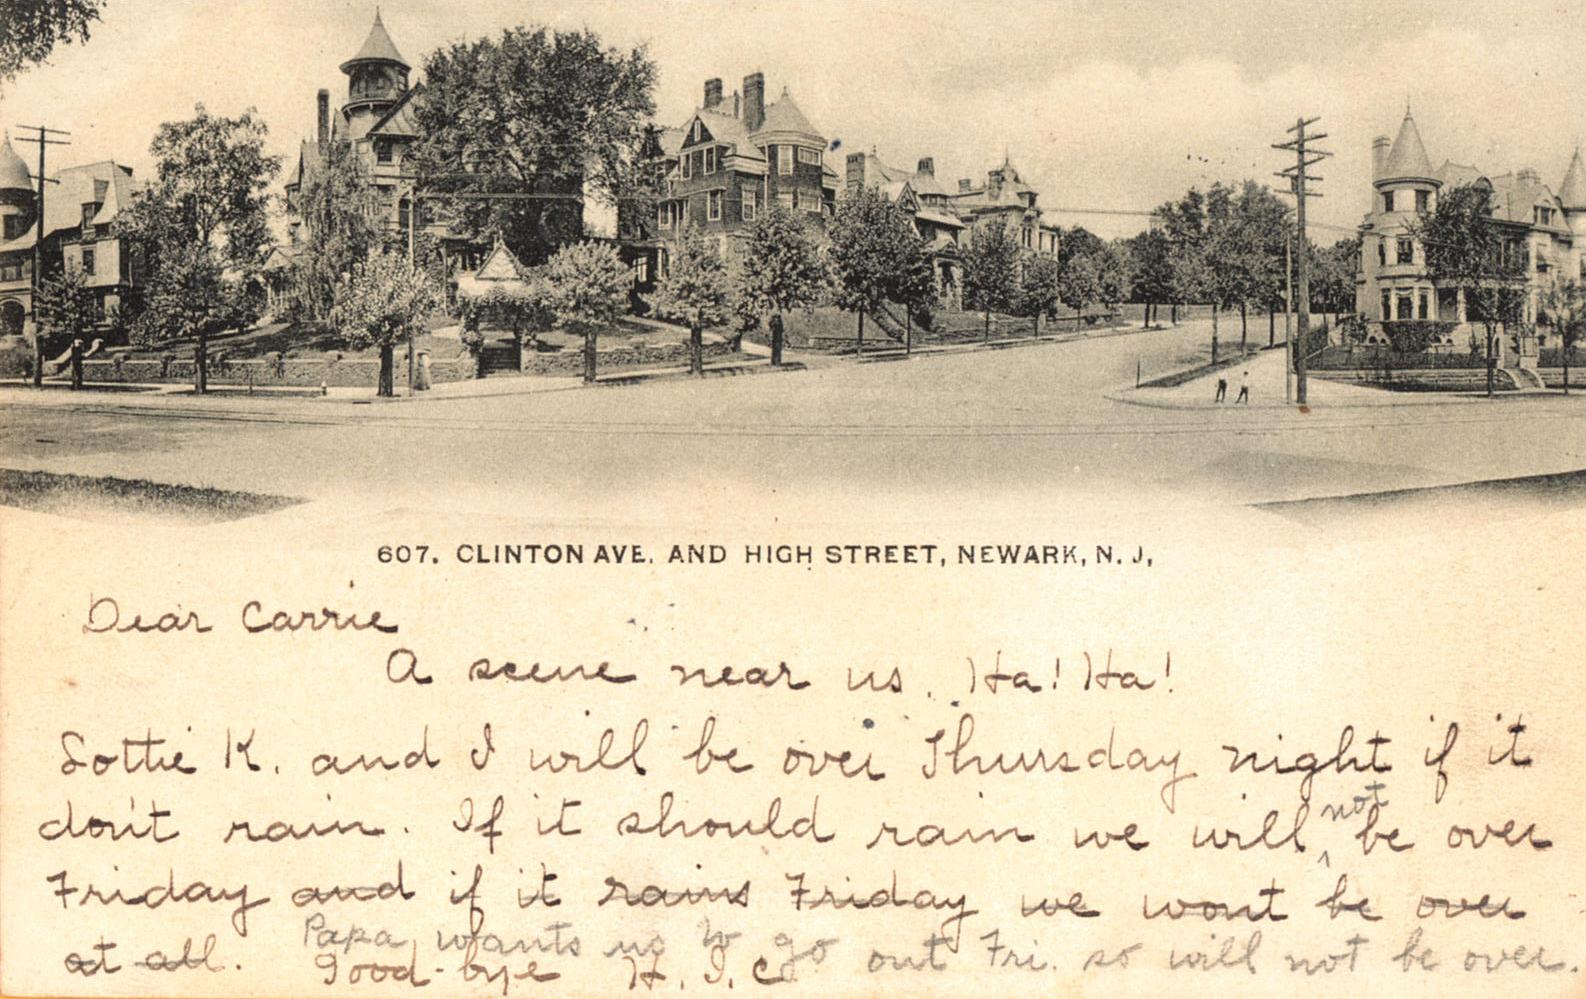 607. CLINTON AVE. AND HIGH STREET, NEWARK, N. J,
Dear Carrie
A scene near us. Ha! Ha!
Lottie K. and I will be over Thursday night if it
don't rain. If it should rain we will not be over
Friday and if it rains Friday we wont be over
at all.
Papa wants us to go out Fri. so will not be over.
Good-bye H. I. C